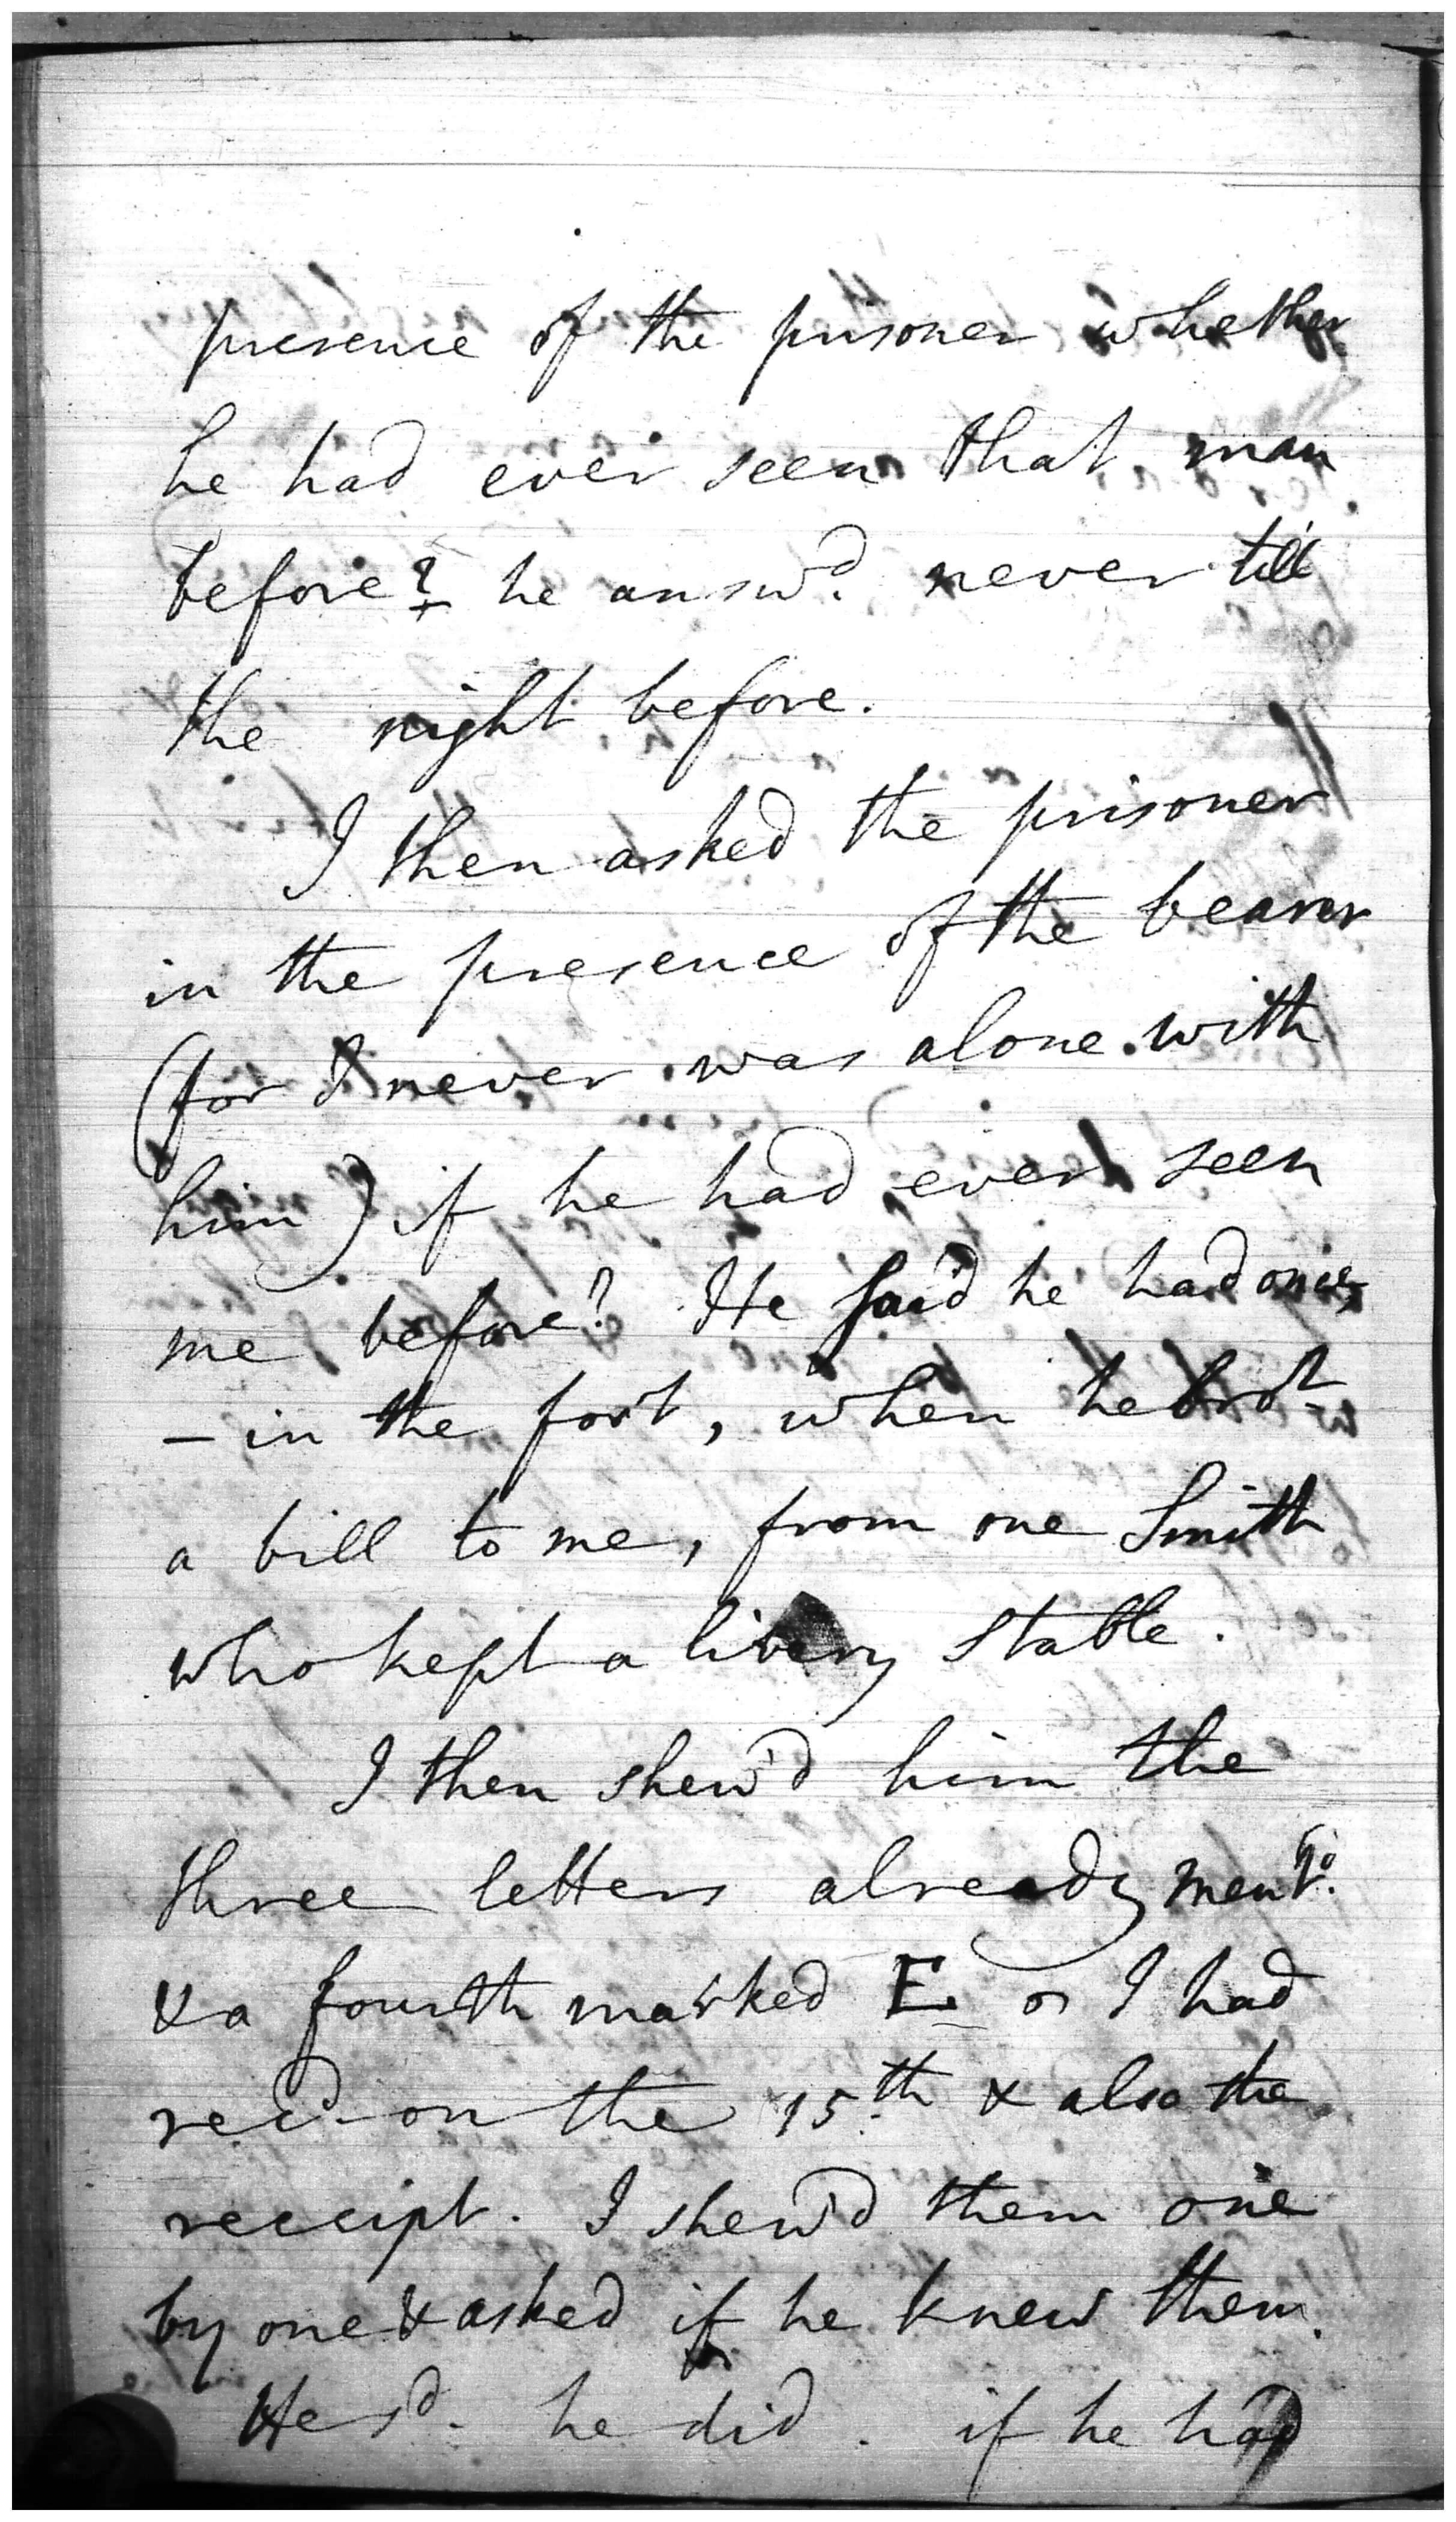 presence of the prisoner whether
he had ever seen that man
before? he answd. never till
the night before.
I then asked the prisoner
in the presence of the bearer
(for I never was alone with
him) if he had ever seen
me before? He said he had once,
– in the fort, when he brot
a bill to me, from one Smith
who kept a livery stable.
I then shew'd him the
three letters already mentd.
& a fourth marked E. I had
recd. on the 15th & also the
receipt. I shew'd them one
by one & asked if he knew them.
He sd. he did. if he had